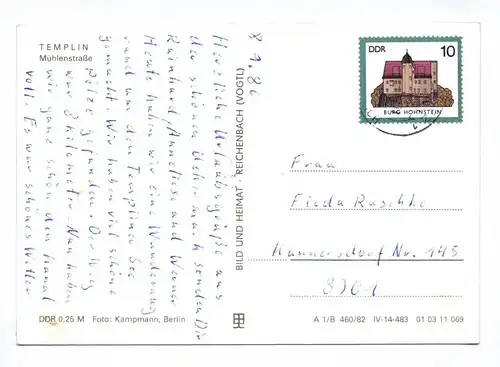 TEMPLIN
Mühlenstraße
8.9.86
Herzliche Urlaubsgrüße aus
der schönen Uckermark senden Dir
Reinhard, Anneliese und Werner
Heute haben wir eine Wanderung
rund um den Templiner See
gemacht. Wir haben viel schöne
Pilze gefunden. Der Weg
war 8 Kilometer. Nun haben
wir ganz schön den Kanal
voll. Es war schönes Wetter
DDR 0.25 M Foto: Kampmann, Berlin
BILD UND HEIMAT · REICHENBACH (VOGTL)
DDR 10
BURG HOHNSTEIN
Frau
Frieda Raschke
Hannersdorf Nr. 145
8701
A 1/B 460/82 IV-14-483 01 03 11 069